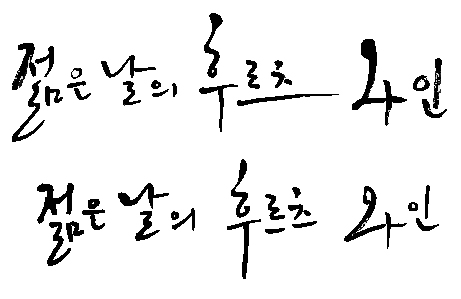 젊은 날의 후르츠 와인
젊은 날의 후르츠 와인